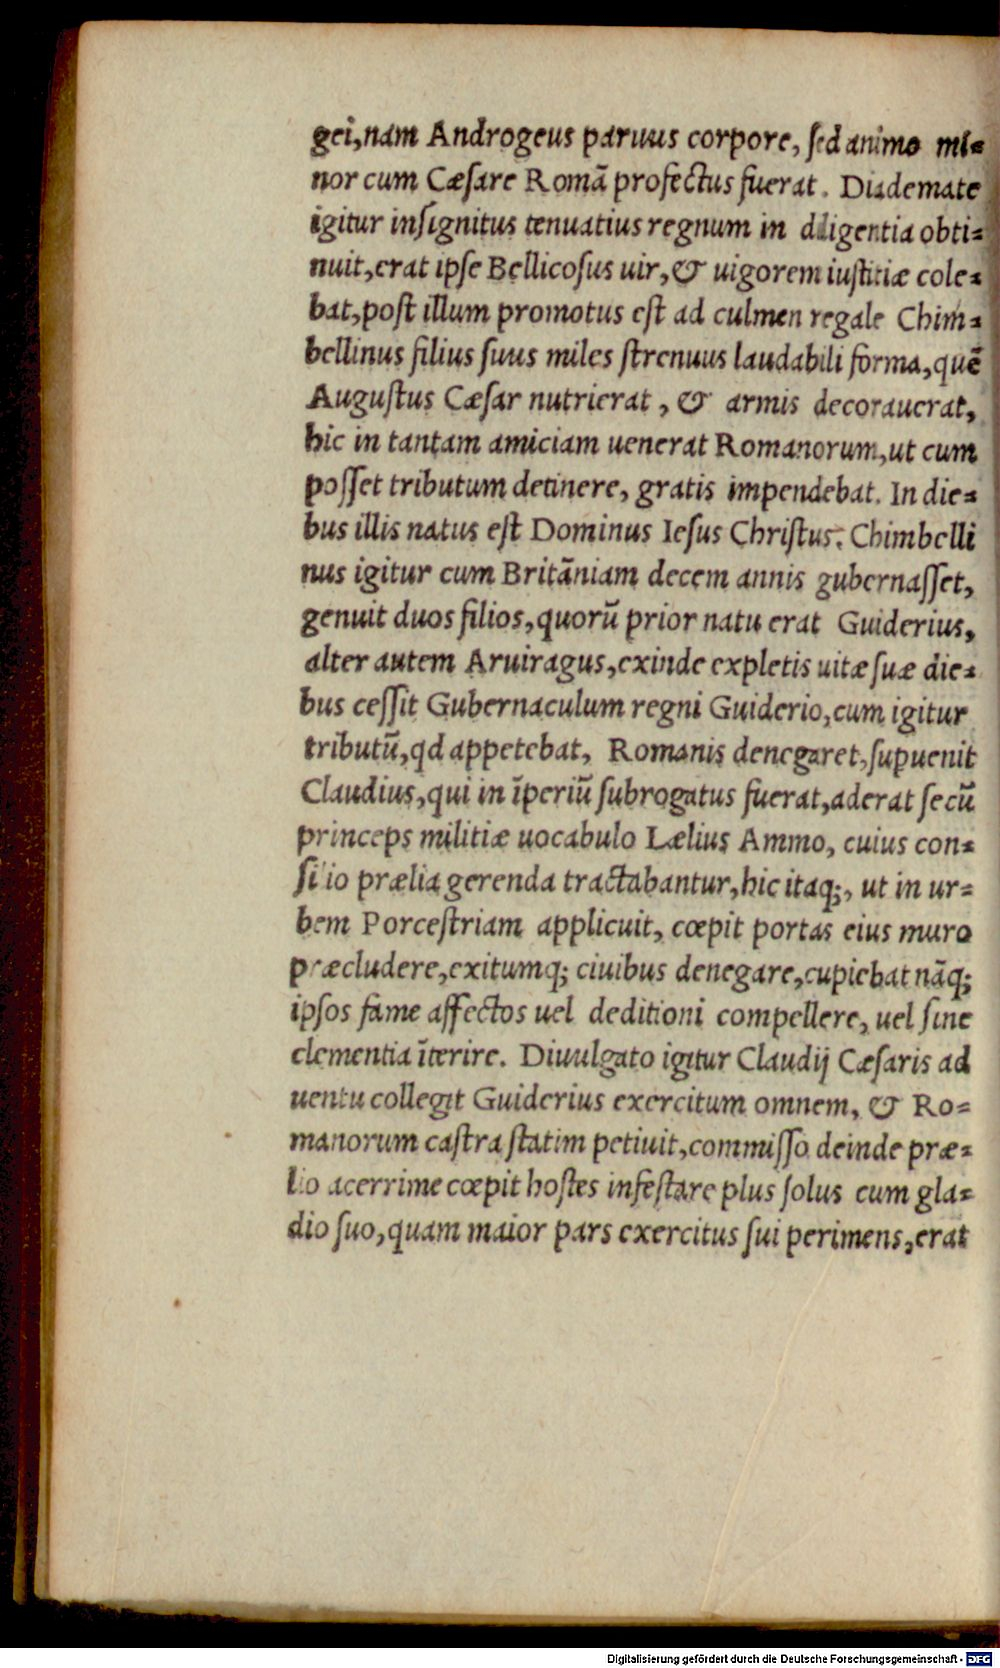 gei,nam Androgeus paruus corpore, ſed animo mi-
nor cum Cæſare Romā profectus fuerat. Diademate
igitur inſignitus tenuatius regnum in diligentia obti-
nuit,erat ipſe Bellicoſus uir,& uigorem iuſtitiæ cole-
bat,poſt illum promotus eſt ad culmen regale Chim-
bellinus filius ſuus miles ſtrenuus laudabili forma,quē
Auguſtus Cæſar nutrierat, & armis decorauerat,
hic in tantam amiciam uenerat Romanorum,ut cum
poſſet tributum detinere, gratis impendebat. In die-
bus illis natus eſt Dominus Ieſus Chriſtus. Chimbelli
nus igitur cum Britāniam decem annis gubernaſſet,
genuit duos filios,quorū prior natu erat Guiderius,
alter autem Aruiragus,exinde expletis uitæ ſuæ die-
bus ceſſit Gubernaculum regni Guiderio,cum igitur
tributū,qd appetebat, Romanis denegaret,ſupuenit
Claudius,qui in īperiū ſubrogatus fuerat,aderat ſecū
princeps militiæ uocabulo Lælius Ammo, cuius con-
ſilio prælia gerenda tractabantur,hic itaq;, ut in ur-
bem Porceſtriam applicuit, cœpit portas eius muro
præcludere,exitumq; ciuibus denegare,cupiebat nāq;
ipſos fame affectos uel deditioni compellere, uel ſine
clementia īterire. Diuulgato igitur Claudij Cæſaris ad
uentu collegit Guiderius exercitum omnem, & Ro-
manorum caſtra ſtatim petiuit,commiſſo deinde præ-
lio acerrime cœpit hoſtes infeſtare plus ſolus cum gla-
dio ſuo,quam maior pars exercitus ſui perimens,erat
Digitalisierung gefördert durch die Deutsche Forschungsgemeinschaft - DFG